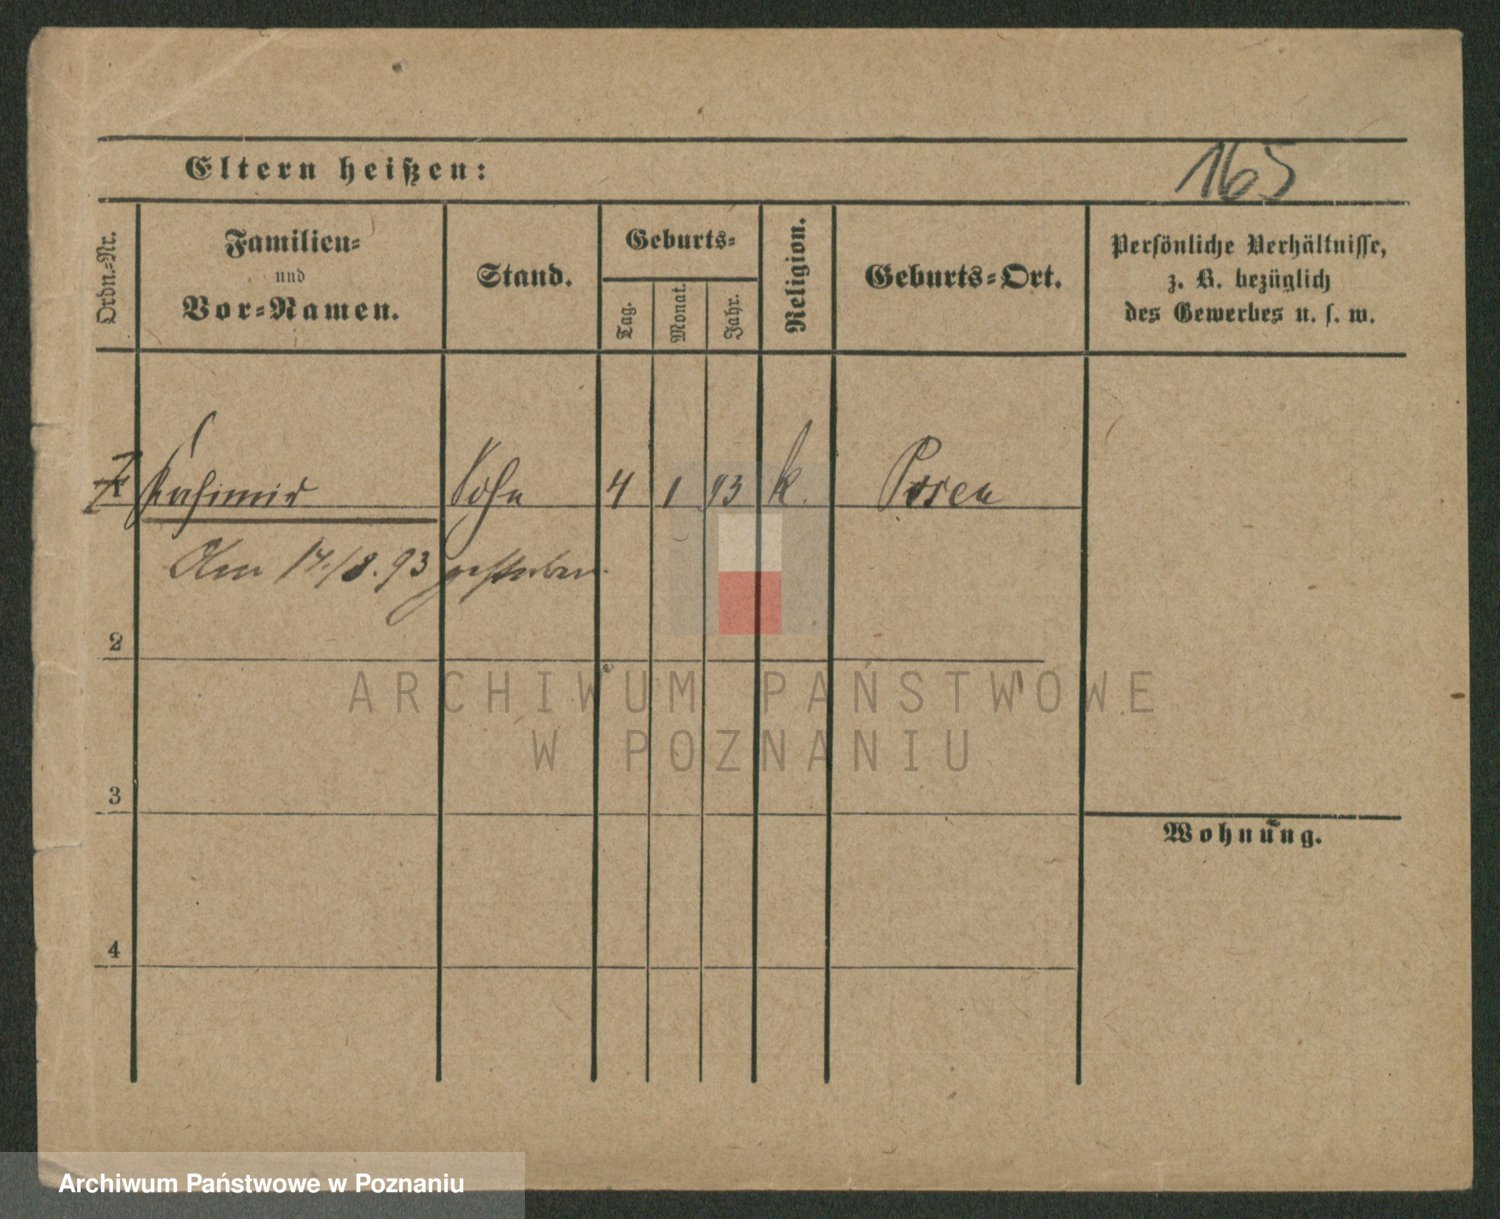 Eltern heißen:
165
Ordn.-Nr.
Familien-
und
Vor-Namen.
Stand.
Geburts-
Tag.
Monat.
Jahr.
Religion.
Geburts-Ort.
Persönliche Verhältnisse,
z. B. bezüglich
des Gewerbes u. s. w.
7 Kasimir Sohn 4 1 93 k. Posen
Am 17./8.93 gestorben.
2
ARCHIWUM PAŃSTWOWE
W POZNANIU
3
Wohnung.
4
Archiwum Państwowe w Poznaniu